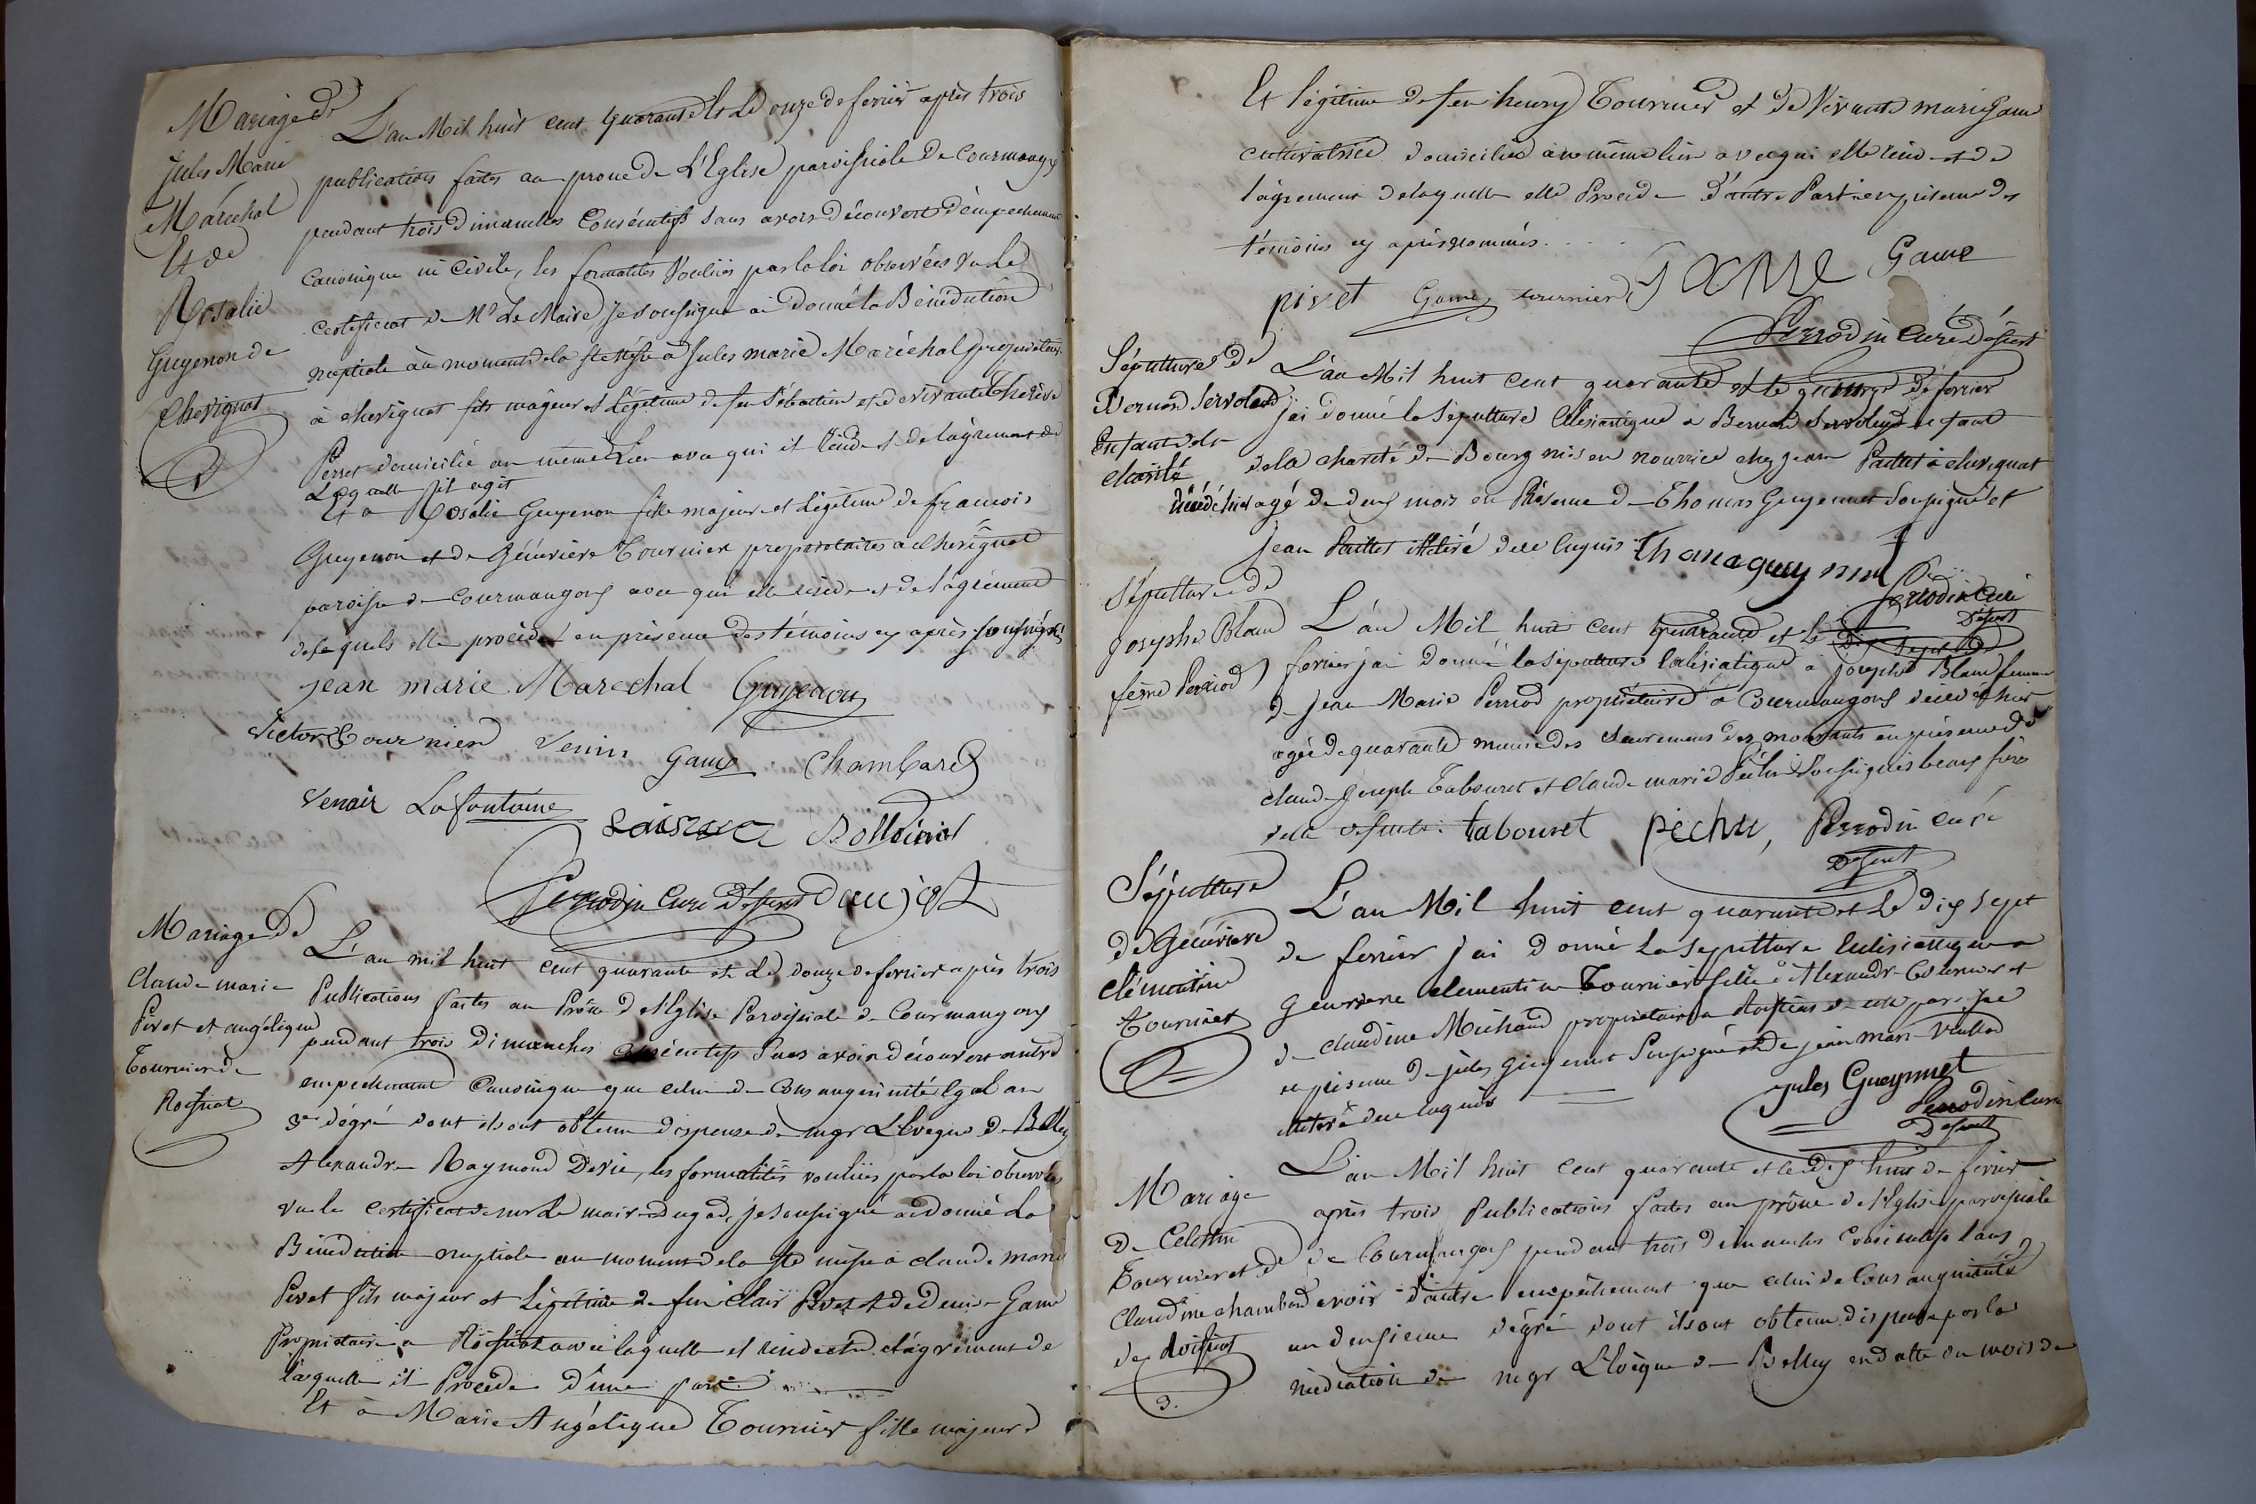 Mariage de
Jules Marie
Maréchal
Et de
Rosalie
Guyenon de
Chevignat
L'an Mil huit cent quarante et le onze de fevrier après trois
publications faites au prone de L'Eglise paroissiale de Courmangoux
pendant trois dimanches Consécutifs sans avoir découvert d'empechement
Canonique ni Civile, les formalites Voulües par la loi observées vu Le
Certificat de Mr Le Maire Je soussigné ai Donné la Bénédiction
nuptiale au moment de la Ste Messe à Jules marie Maréchal proprietaire
à chevignat fils majeur et Légitime de feu Sébastien et de vivante Therèse
Perret domicilié au même Lieu avec qui il Réside et de lagrement de
Laquelle il agit
Et a Rosalie Guyenon fille majeure et Légitime de francois
Guyenon et de Géneviève Tournier propriétaires a chevignat
paroisse de Courmangoux avec qui elle réside et de l'agrément
desquels elle procède en présence des témoins cy après soussignés
jean marie Marechal Guyenon
Victor Tournier Venin Game Chambard
Venair Lafontaine
Perrodin Curé Desservt
Mariage de
Claude marie
Pivet et angélique
Tournier de
Rosseat
L'an mil huit cent quarante et Le douze de fevrier après trois
Publications faites au Prône de l'Eglise Paroissiale de Courmangoux
pendant trois Dimanches consécutifs sans avoir découvert autre
empechement Canonique que celui de Consanguinité Egal au
3e dégré dont ils ont obtenu dispense de mgr L'Evèque de Belley
Alexandre Raymond Devie, les formalités voulües par la loi observées
vu le certificat de mr Le maire dugad, je soussigné ai donné La
Bénédiction nuptiale au moment de la Ste messe à claude marie
Pivet fils majeur et Légitime de feu clair Pivet et de Denise Game
Propriétaire a avec laquelle il réside et de l'agrément de
laquelle il Procède d'une part
Et à Marie Angélique Tournier fille majeure
Et légitime de feu henry Tournier et de Vivante marie Game
cultivatrice domiciliée au même lieu avec qui elle réside et de
l'agrement de laquelle elle Procède d'autre Part en présence des
témoins cy après nommés. . . .
pivet Game tournier GAME Game
Perrodin Curé Desservt
Sépulture de
Bernard Servoland
Enfant de la
charité
L'an Mil huit cent quarante et le quinze de fevrier
j'ai donné la Sépulture Eclésiastique a Bernard Servoland enfant
de la charité de Bourg mis en nourrice chez jean Paillet à chevignat
décédé hier agé de deux mois en Présence de Thomas Guyennet Soussigné et
jean Paillet illétré de ce enquis
Perrodin Curé
Desservt
Sépulture de
Josephe Bland
feme Perriod
L'an Mil huit cent quarante et le Dix Sept de
fevrier jai donné la sépulture Eclésiatique à josephe Bland femme
de Jean Marie Perriod propriétaire a Courmangoux décédée hier
agée de quarante munie des Sacremens des mourants en présence de
claude Joseph Tabouret et claude marie Péchu Soussignés beaux frères
de la défunte. tabouret péchu, Perrodin curé
Desservt
Sépulture
de Généviève
Clémentine
Tournier
L'an Mil huit cent quarante et Le dix sept
de fevrier j'ai donné La Sepulture Eclésiastique a
Genevieve clementine Tournier fille d'Alexandre Tournier et
de claudine Michaud propriétaires a Roissiat de cette paroisse
en présence de jules Guyennet Soussigné et de jean marie
illétéré de ce enquis
jules Gueynnet
Perrodin Curé
Desservt
Mariage
De Célestin
Tournier et de
Claudine chambard
de Roissiat
3.
L'an Mil huit cent quarante et le dix huit de fevrier
après trois Publications faites au prône de l'Eglise paroissiale
de Courmangoux pendant trois dimanches Consécutifs Sans
avoir d'autre empêchement que celui de Consanguinité
au deuxieme dégré dont ils ont obtenu dispense par la
médiation de mgr L'Evèque de Belley en datte du mois de